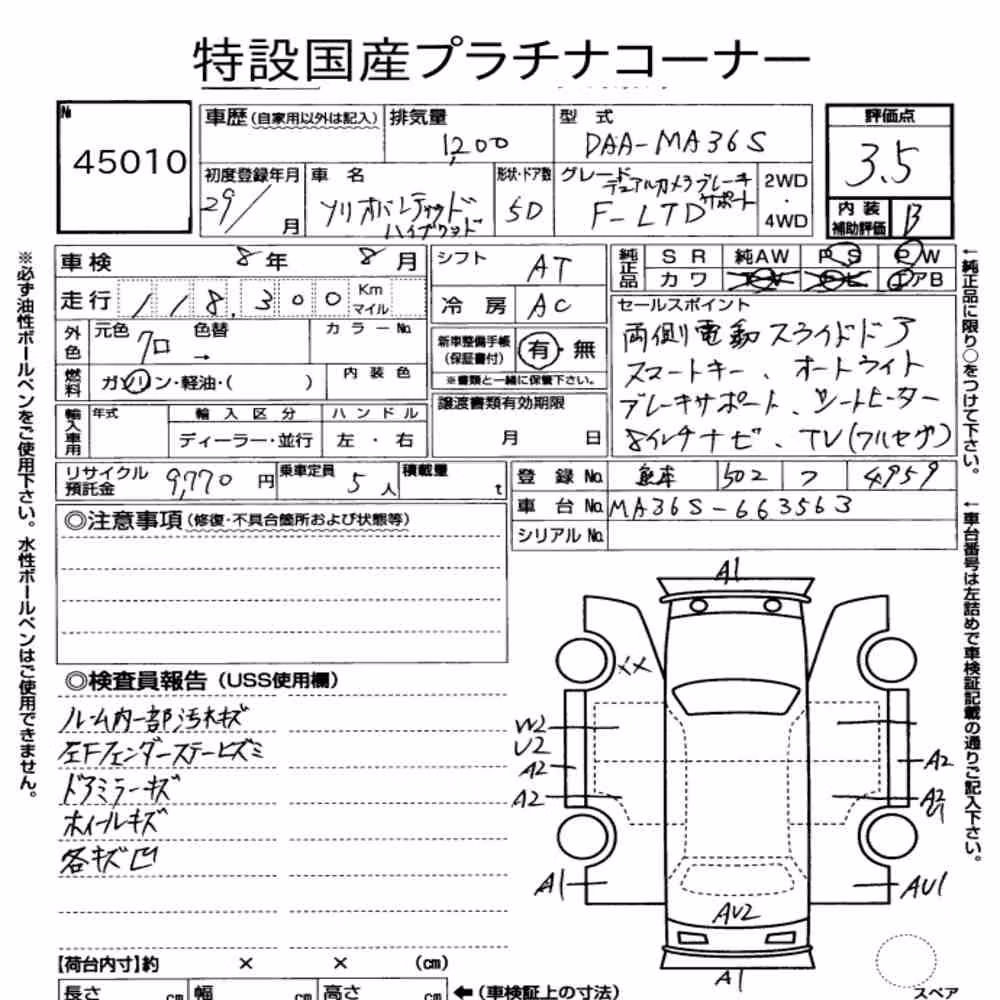 特設国産プラチナコーナー
№ 45010
車歴(自家用以外は記入)
排気量 1,200
型式 DAA-MA36S
評価点 3.5
初度登録年月 29/ 月
車名 ソリオバンディッド ハイブリッド
形状・ドア数 5D
グレード デュアルカメラブレーキサポート F-LTD
2WD・4WD
内装補助評価 B
※必ず油性ボールペンをご使用下さい。水性ボールペンはご使用できません。
車検 8年 8月
走行 118,300 Km マイル
外色 元色 クロ 色替 → カラーNo.
燃料 ガソリン・軽油・( ) 内装色
輸入車用 年式 輸入区分 ハンドル
ディーラー・並行 左・右
シフト AT
冷房 AC
新車整備手帳(保証書付) 有・無
※書類と一緒に保管下さい。
譲渡書類有効期限
月 日
純正品 SR 純AW PS PW
カワ エアB
セールスポイント
両側電動スライドドア
スマートキー、オートライト
ブレーキサポート、シートヒーター
8インチナビ、TV(フルセグ)
←純正品に限り○をつけて下さい。
リサイクル預託金 9,770円
乗車定員 5人
積載量 t
登録No. 熊本 502 フ 4959
車台No. MA36S-663563
シリアルNo.
←車台番号は左詰めで車検証記載の通りご記入下さい。
◎注意事項(修復・不具合箇所および状態等)
◎検査員報告(USS使用欄)
ルーム内一部汚れキズ
左Fフェンダーステーヒズミ
ドアミラーキズ
ホイールキズ
各キズ凹
A1
XX
W2
U2
A2
A2
A2
A2
U1
A1
AU1
AU2
A1
【荷台内寸】約 × × (cm)
長さ cm 幅 cm 高さ cm ←(車検証上の寸法)
スペア